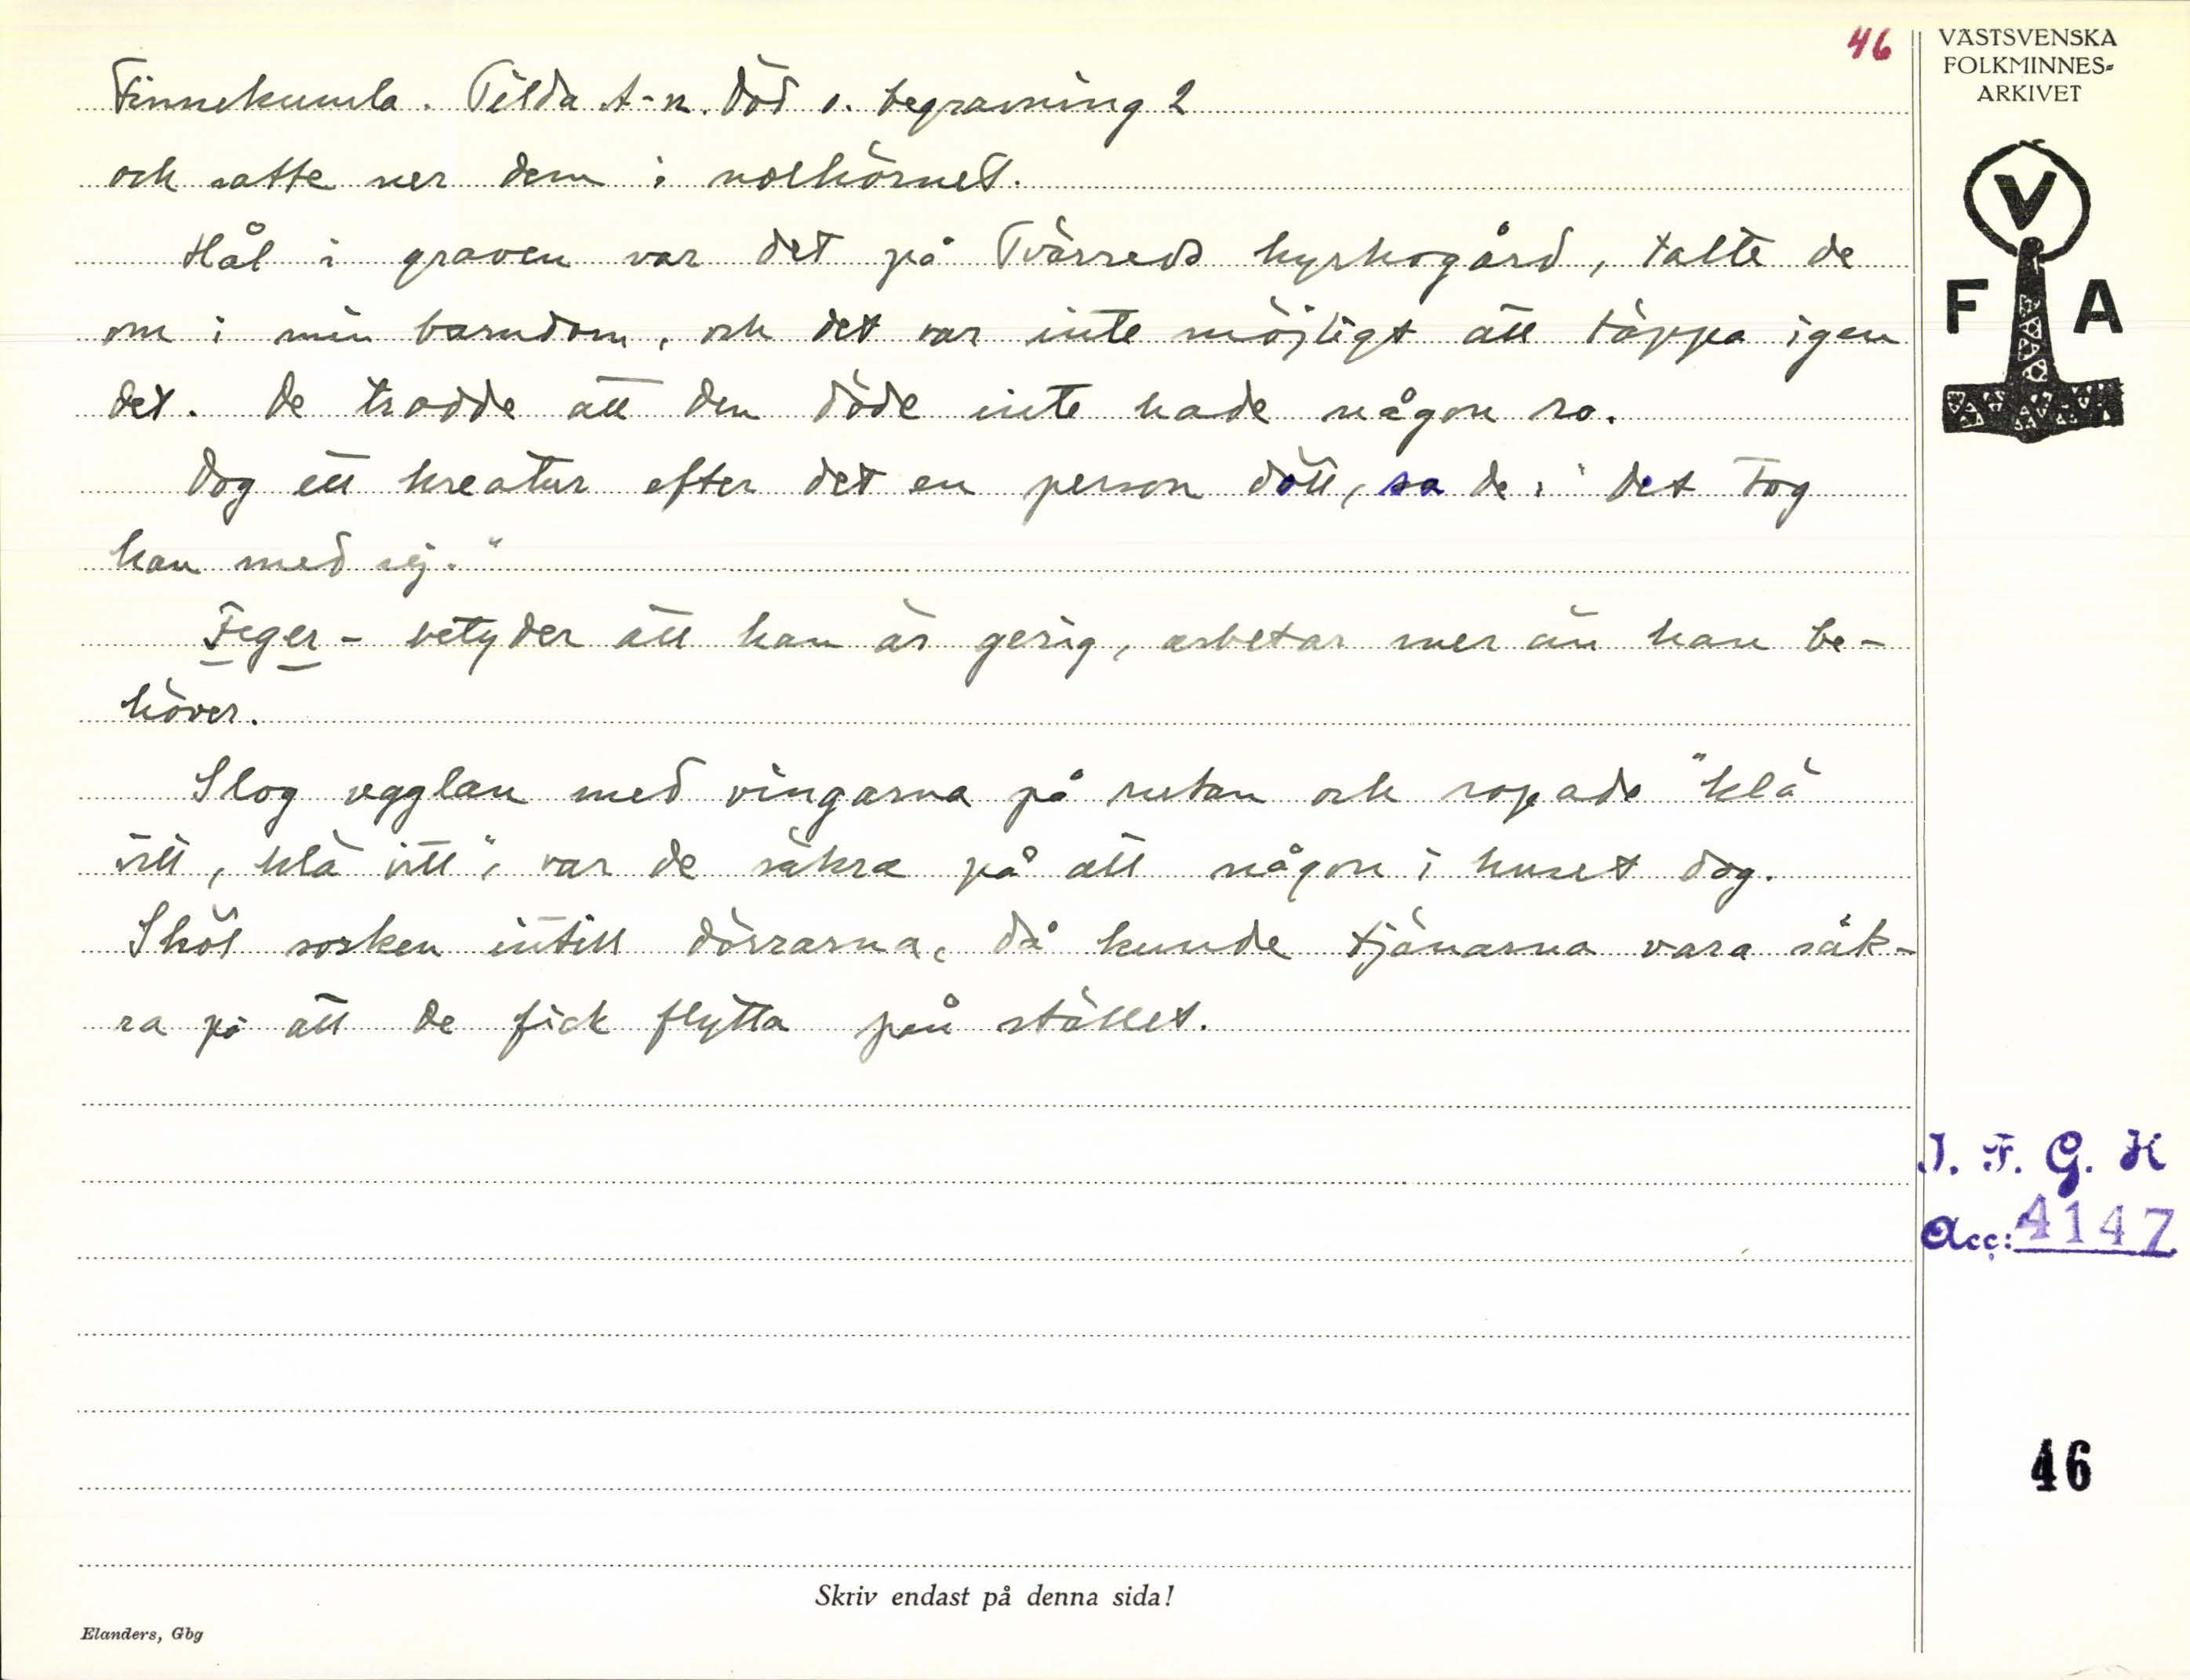 46
VÄSTSVENSKA
FOLKMINNES=
ARKIVET
V
F A
Finnekumla. Tilda A-n. Död o. begravning 2
och satte ner dem i nolhörnet.
Hål i graven var det på Tvärreds kyrkogård, talte de
om i min barndom, och det var inte möjligt att täppa igen
det. De trodde att den döde inte hade någon ro.
Dog ett kreatur efter det en person dött, sa de: "det tog
han med sej."
Feger - betyder att han är gerig, arbetar mer än han be-
höver.
Slog ugglan med vingarna på rutan och ropade "klä
vitt, klä vitt", var de säkra på att någon i huset dog.
Sköt sorken intill dörrarna, då kunde tjänarna vara säk-
ra på att de fick flytta från stället.
I. F. G. H
Acc: 4147
46
Skriv endast på denna sida!
Elanders, Gbg